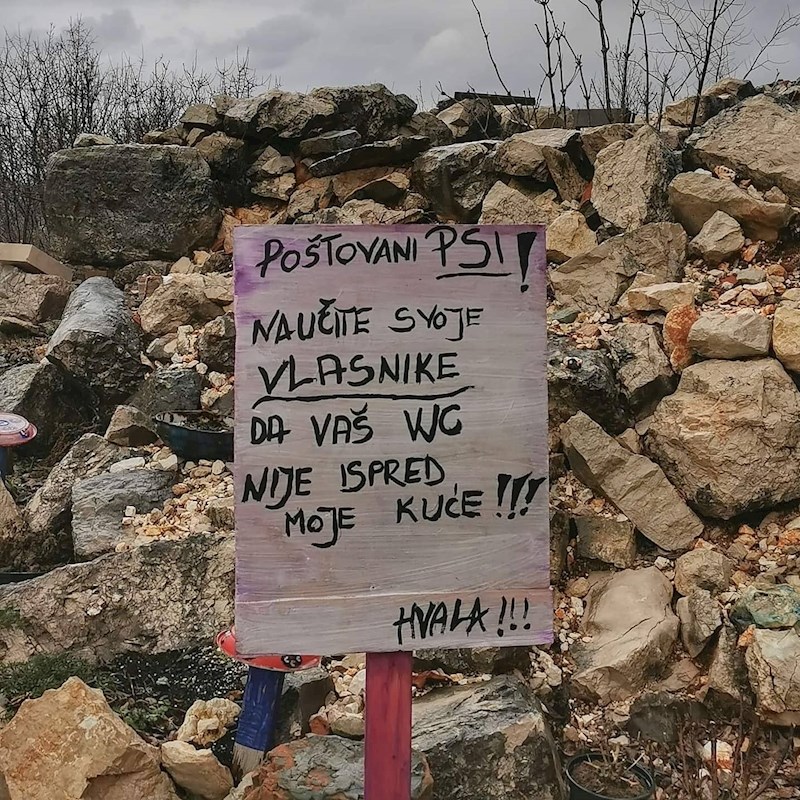 POŠTOVANI PSI!
NAUČITE SVOJE
VLASNIKE
DA VAŠ WC
NIJE ISPRED
MOJE KUĆE!!!
HVALA!!!